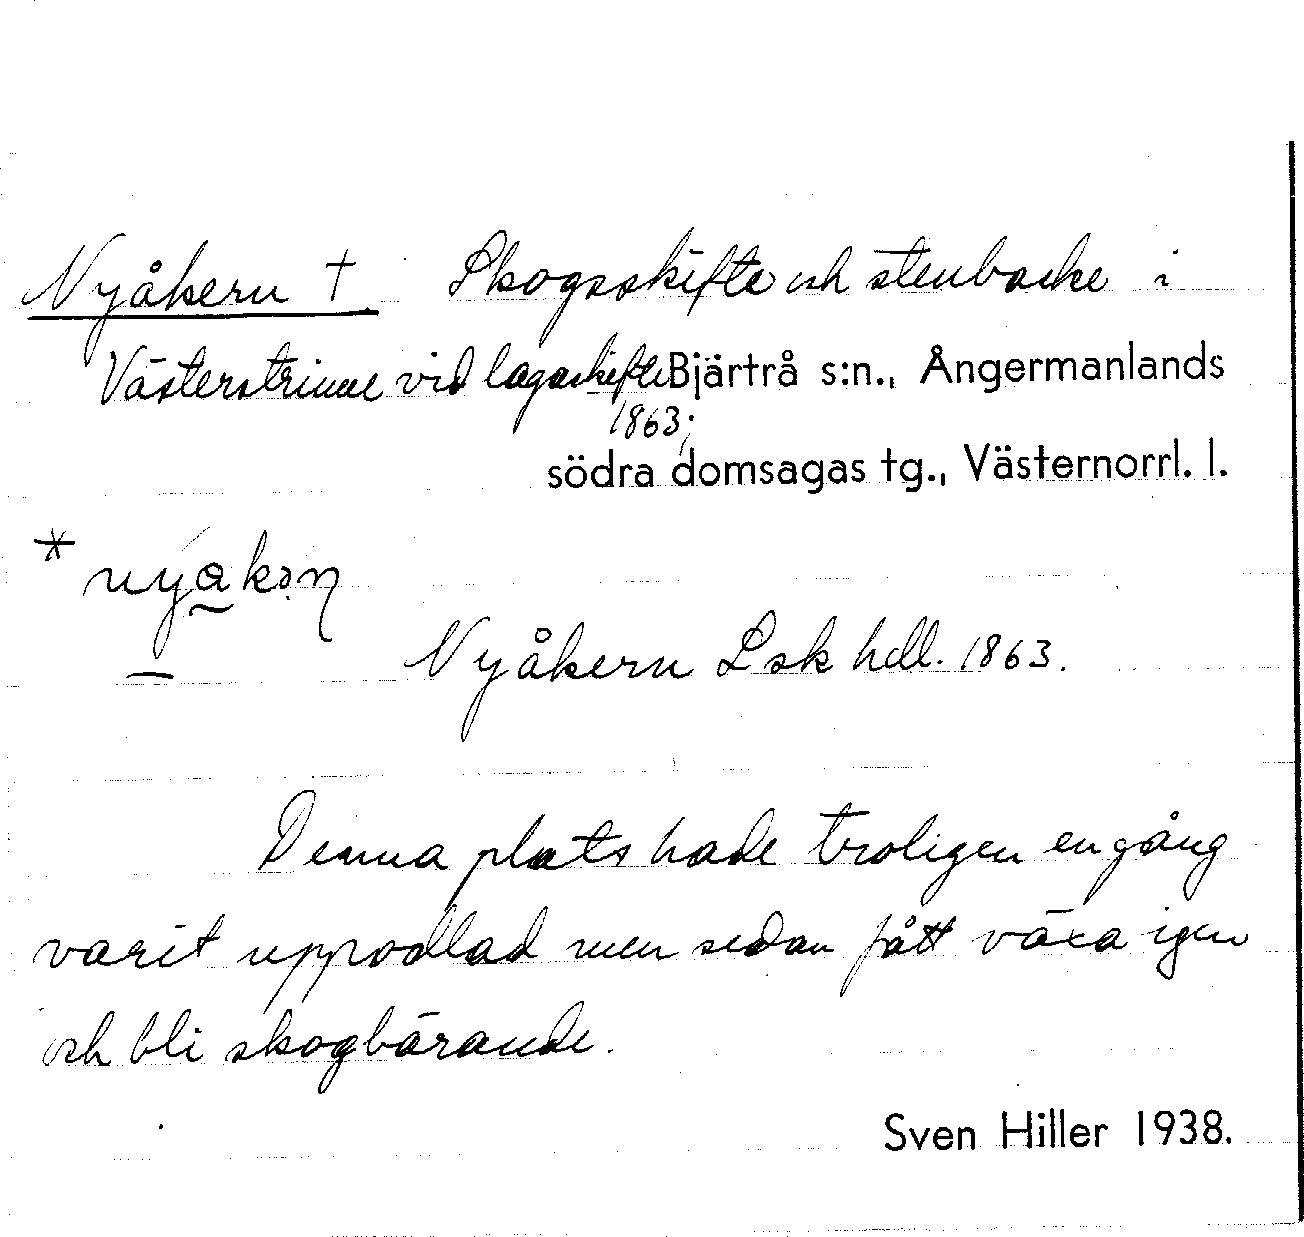 Nyåkern † Skogsskifte och stenbacke i
Västerstrinne vid lagaskifte Bjärtrå s:n., Ångermanlands
1863;
södra domsagas tg., Västernorrl. l.
Nyåkern Lsk hdl. 1863.
Denna plats hade troligen en gång
varit uppodlad men sedan fått växa igen
och bli skogbärande.
Sven Hiller 1938.